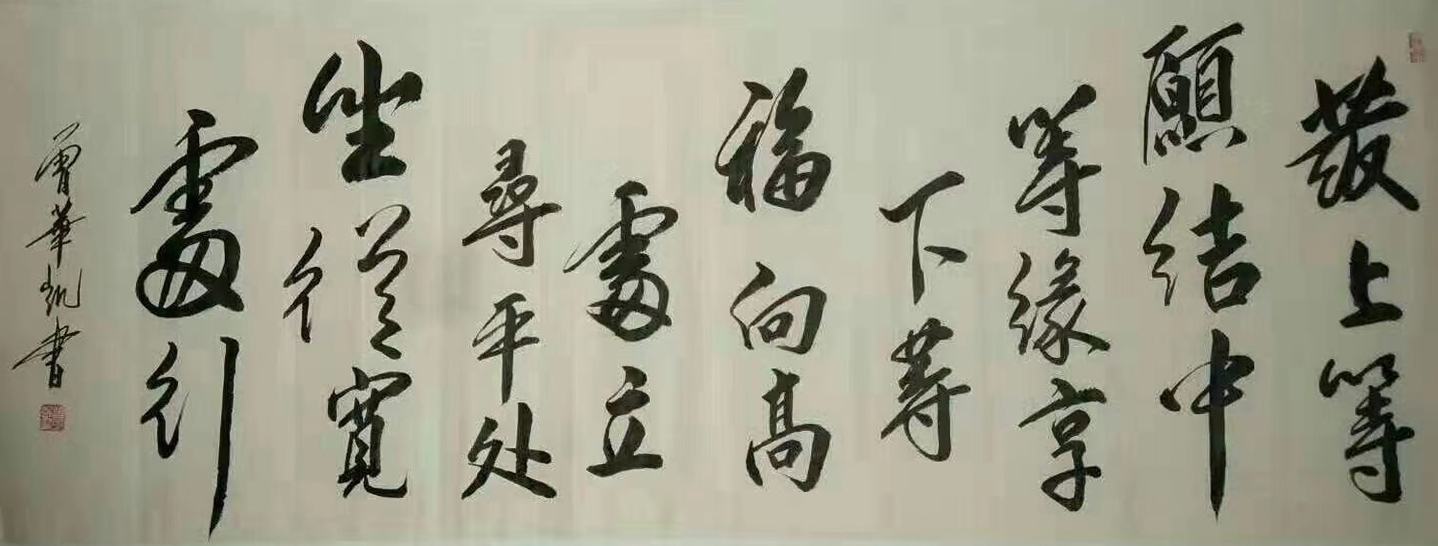 發上等
願结中
等缘享
下等
福向高
處立
尋平处
坐從寬
處行
曾華凱書